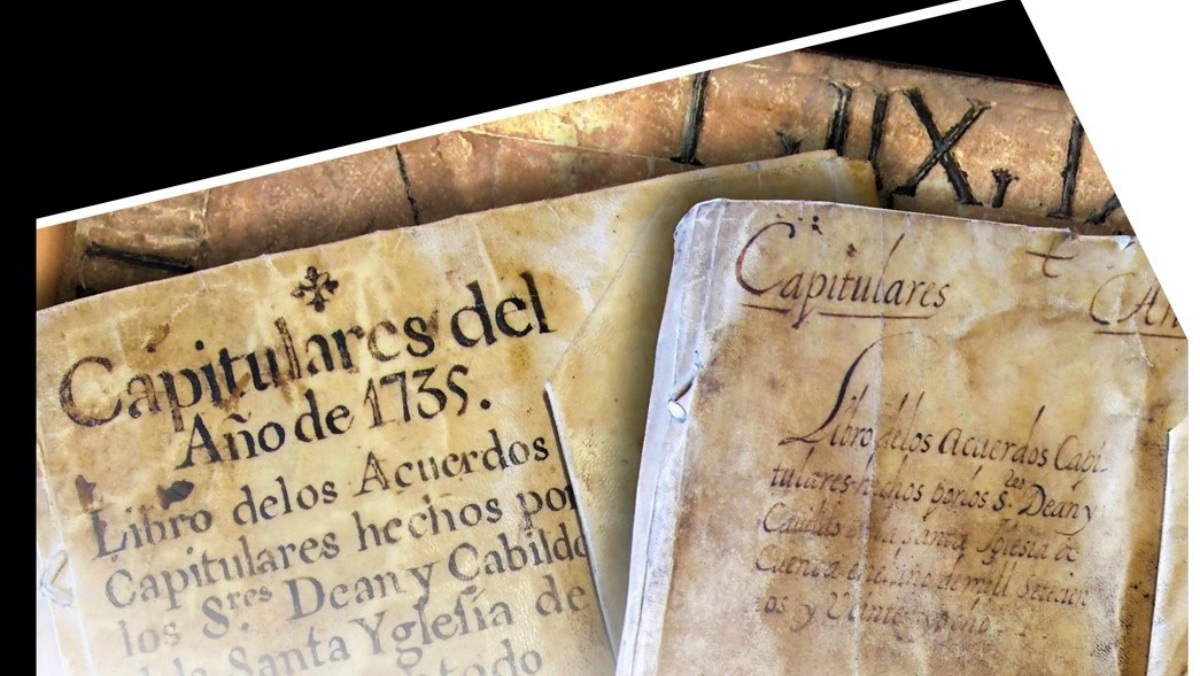 I, II X, I
Capitulares del
Año de 1735.
Libro delos Acuerdos
Capitulares hechos por
los S.res Dean y Cabildo
dela Santa Yglesia de
todo
Capitulares
Libro delos acuerdos Capi-
tulares hechos por los S.res Dean y
Cauildo en la Santa Yglesia de
Cuenca en el año de mill Setecien
os y Veinte